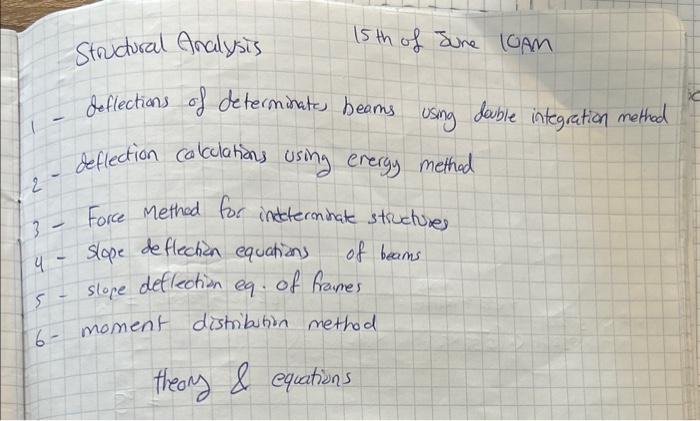 Structural Analysis 15th of June 10AM
1 - deflections of determinate beams using double integration method
2 - deflection calculations using energy method
3 - Force Method for indeterminate structures
4 - slope deflection equations of beams
5 - slope deflection eq. of frames
6 - moment distribution method
theory & equations